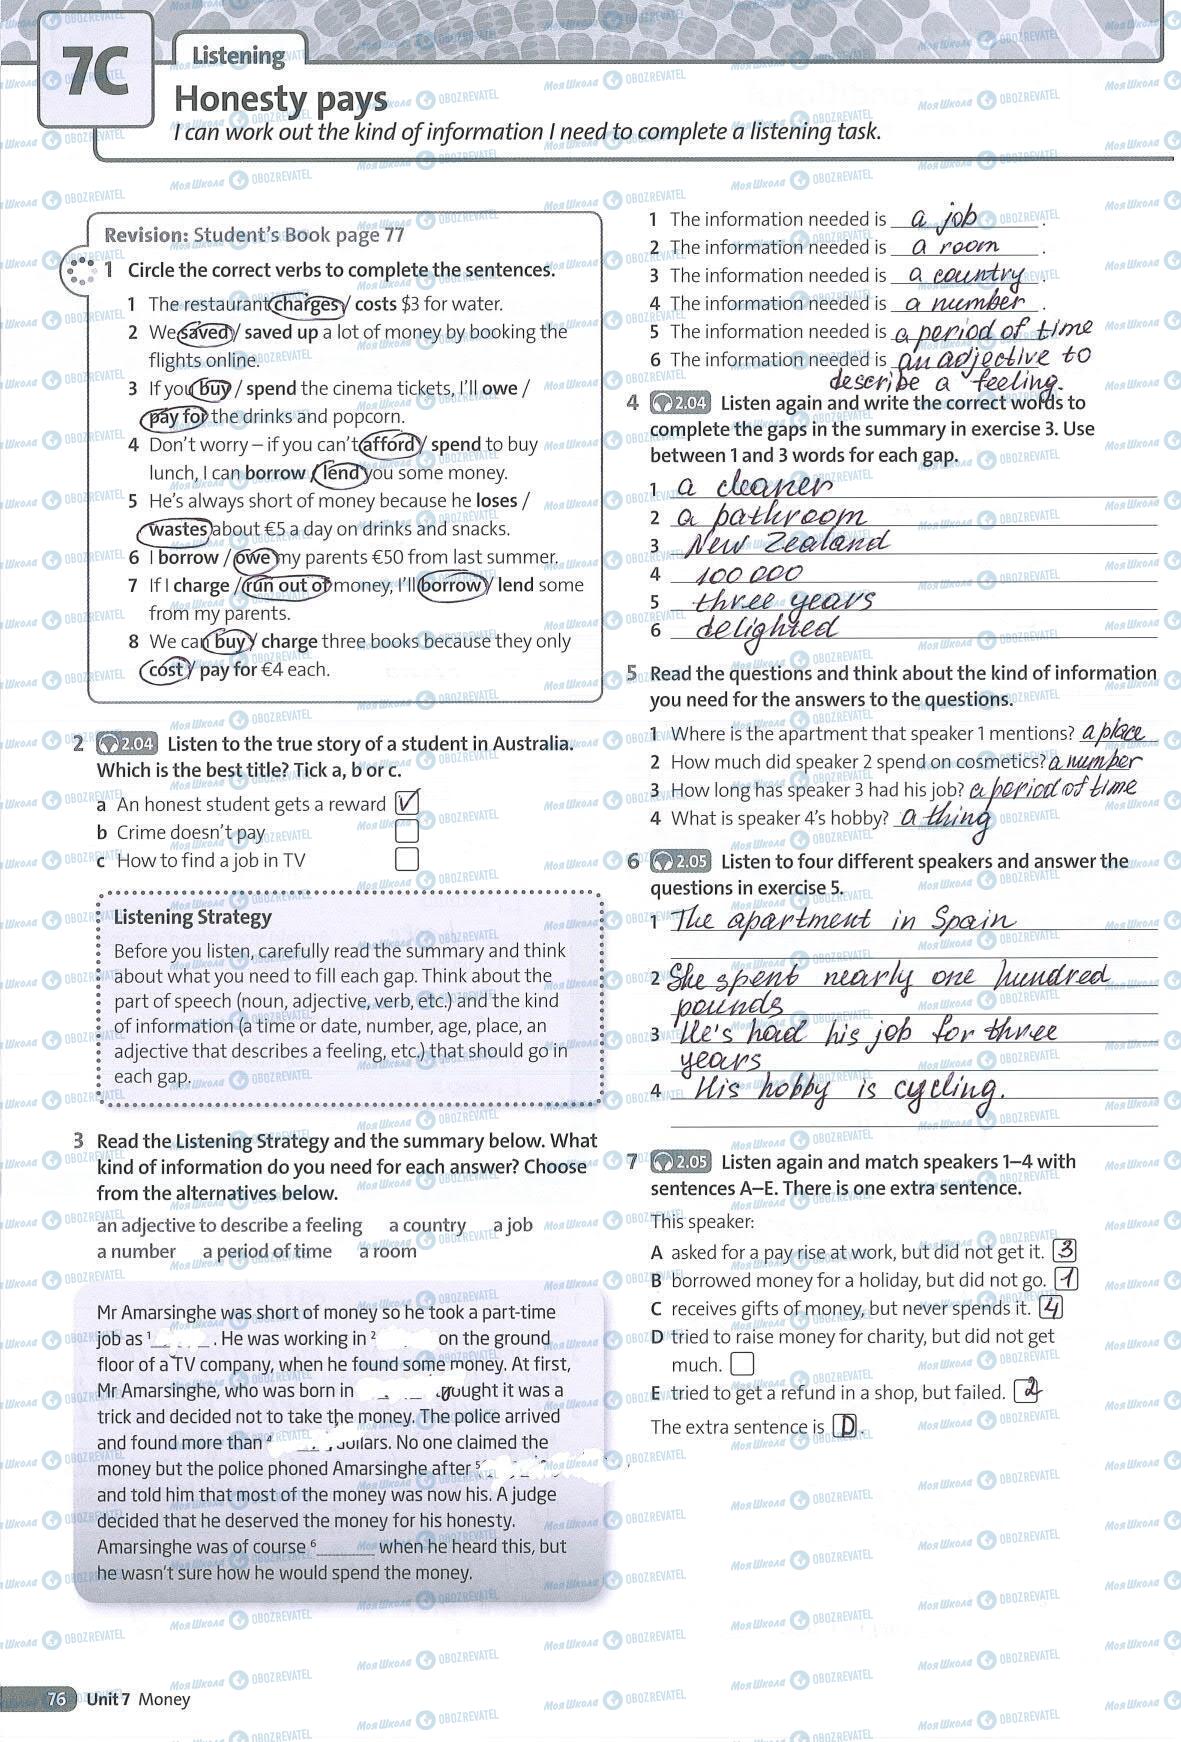 7C
Listening
Honesty pays
I can work out the kind of information I need to complete a listening task.
Revision: Student's Book page 77
1 Circle the correct verbs to complete the sentences.
1 The restaurant charges / costs $3 for water.
2 We saved / saved up a lot of money by booking the
flights online.
3 If you buy / spend the cinema tickets, I'll owe /
pay for the drinks and popcorn.
4 Don't worry – if you can't afford / spend to buy
lunch, I can borrow / lend you some money.
5 He's always short of money because he loses /
wastes about €5 a day on drinks and snacks.
6 I borrow / owe my parents €50 from last summer.
7 If I charge / run out of money, I'll borrow / lend some
from my parents.
8 We can buy / charge three books because they only
cost / pay for €4 each.
2 2.04 Listen to the true story of a student in Australia.
Which is the best title? Tick a, b or c.
a An honest student gets a reward V
b Crime doesn't pay
c How to find a job in TV
Listening Strategy
Before you listen, carefully read the summary and think
about what you need to fill each gap. Think about the
part of speech (noun, adjective, verb, etc.) and the kind
of information (a time or date, number, age, place, an
adjective that describes a feeling, etc.) that should go in
each gap.
3 Read the Listening Strategy and the summary below. What
kind of information do you need for each answer? Choose
from the alternatives below.
an adjective to describe a feeling a country a job
a number a period of time a room
Mr Amarsinghe was short of money so he took a part-time
job as 1 . He was working in 2 on the ground
floor of a TV company, when he found some money. At first,
Mr Amarsinghe, who was born in ought it was a
trick and decided not to take the money. The police arrived
and found more than 4 dollars. No one claimed the
money but the police phoned Amarsinghe after 5
and told him that most of the money was now his. A judge
decided that he deserved the money for his honesty.
Amarsinghe was of course 6 when he heard this, but
he wasn't sure how he would spend the money.
76 Unit 7 Money
1 The information needed is a job .
2 The information needed is a room .
3 The information needed is a country .
4 The information needed is a number .
5 The information needed is a period of time
6 The information needed is an adjective to
describe a feeling.
4 2.04 Listen again and write the correct words to
complete the gaps in the summary in exercise 3. Use
between 1 and 3 words for each gap.
1 a cleaner
2 a bathroom
3 New Zealand
4 100 000
5 three years
6 delighted
5 Read the questions and think about the kind of information
you need for the answers to the questions.
1 Where is the apartment that speaker 1 mentions? a place
2 How much did speaker 2 spend on cosmetics? a number
3 How long has speaker 3 had his job? a period of time
4 What is speaker 4's hobby? a thing
6 2.05 Listen to four different speakers and answer the
questions in exercise 5.
1 The apartment in Spain
2 She spent nearly one hundred
pounds
3 He's had his job for three
years
4 His hobby is cycling.
7 2.05 Listen again and match speakers 1–4 with
sentences A–E. There is one extra sentence.
This speaker:
A asked for a pay rise at work, but did not get it. 3
B borrowed money for a holiday, but did not go. 1
C receives gifts of money, but never spends it. 4
D tried to raise money for charity, but did not get
much.
E tried to get a refund in a shop, but failed. 2
The extra sentence is D .
МояШкола OBOZREVATEL